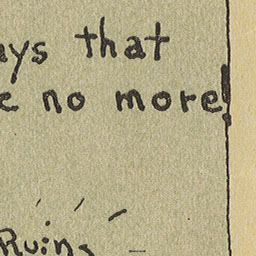 ays that
e no more!
Ruins